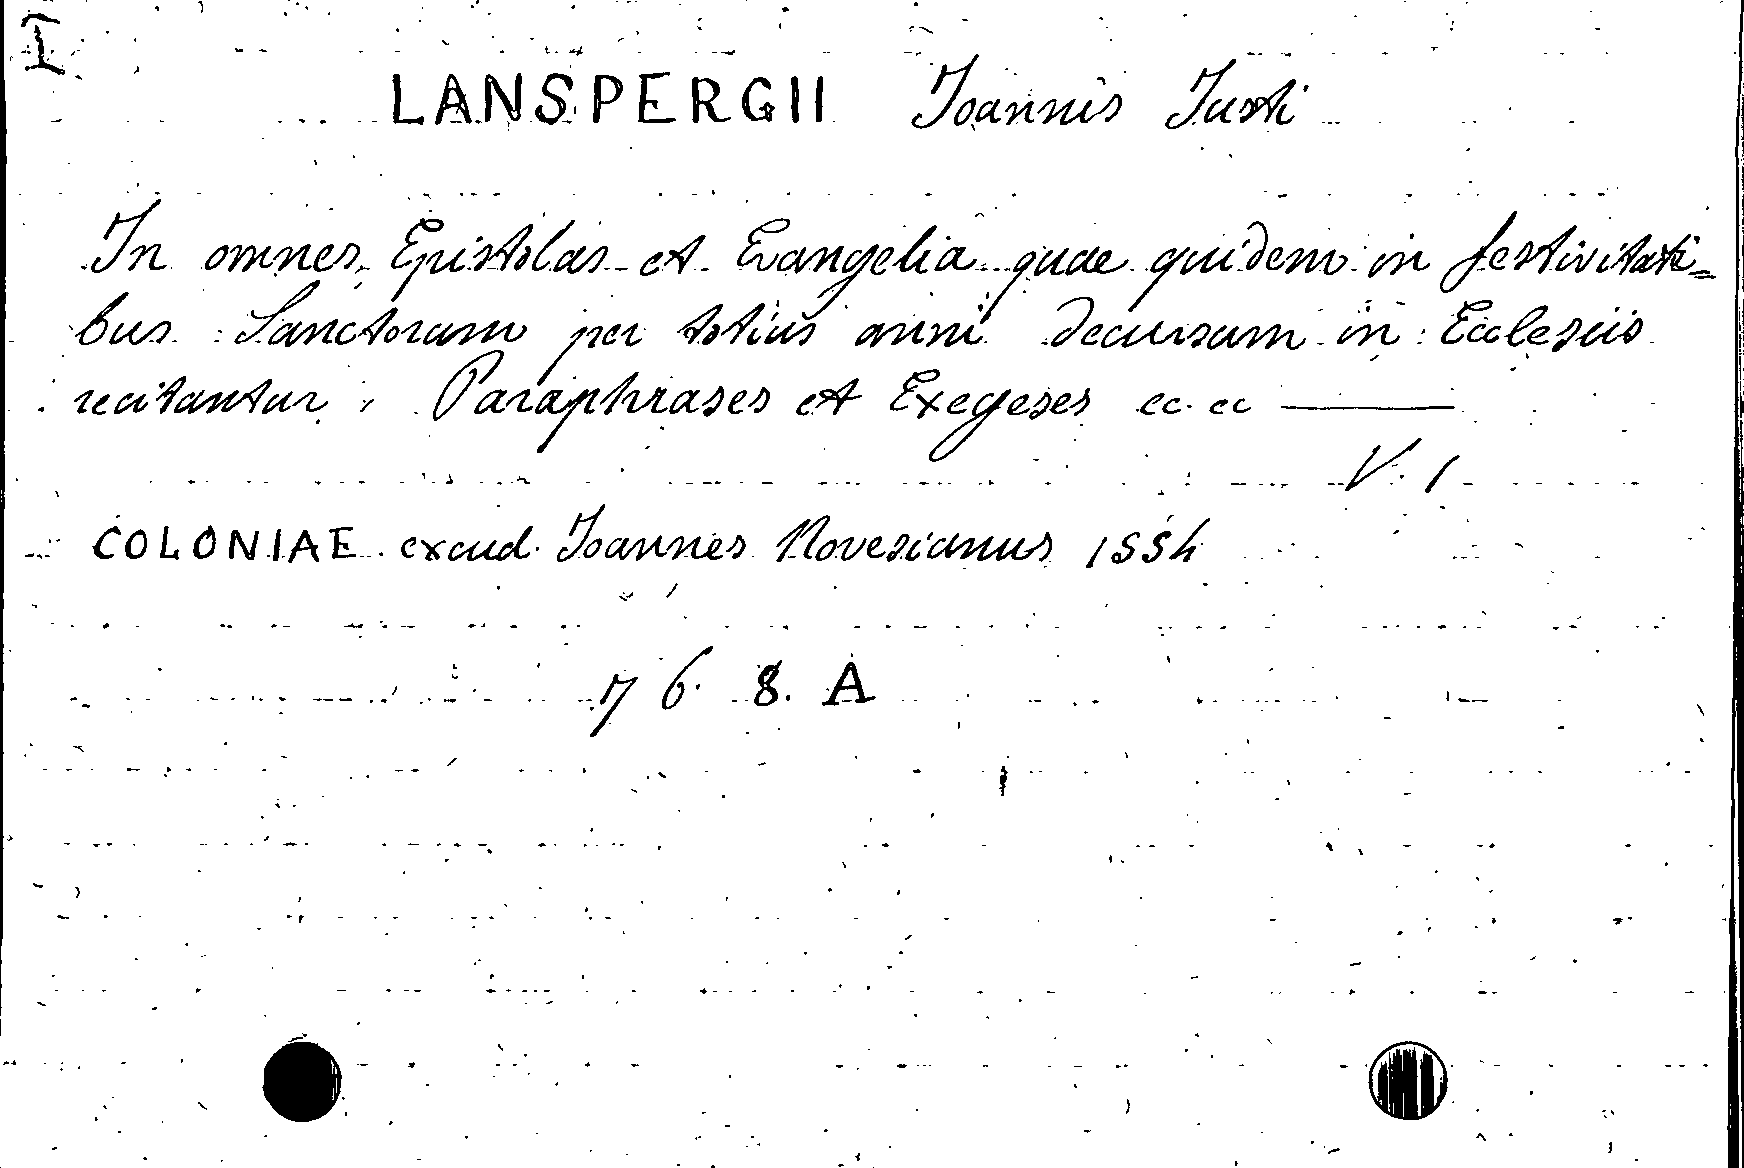 I
LANSPERGII Joannis Justi
In omnes Epistolas et Evangelia quae quidem in festivitati=
bus Sanctorum per totius anni decursum in Ecclesiis
recitantur, Paraphrases et Exegeses ec. ec ———
V. 1
COLONIAE excud. Joannes Novesianus 1554
76. 8. A